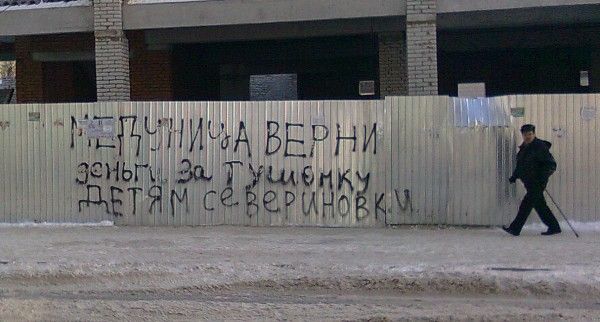 МЕДУНИЦА ВЕРНИ
деньги за тушонку
ДЕТЯМ СЕВЕРИНОВКИ